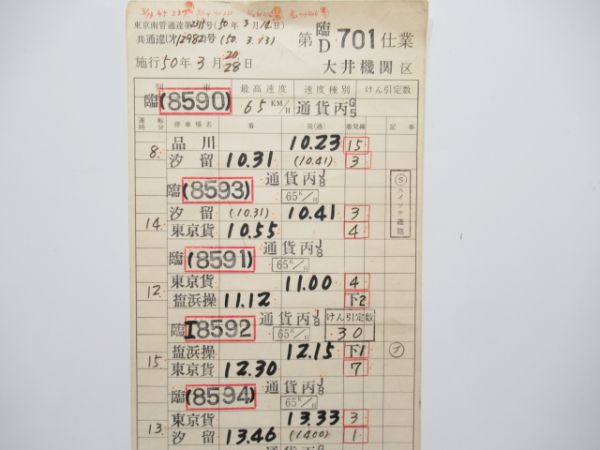 東京南管通達第215号(50年3月12日)
共通達(か12982)号(50.3.13)
第臨D701仕業
施行50年3月20/28日
大井機関区
列車 最高速度 速度種別 けん引定数
臨(8590) 65KM/H 通貨丙G5
運転時分 停車場名 着 発(通) 着発線 記事
品川 10.23 15
8. 汐留 10.31 (10.41) 3
臨(8593) 通貨丙J8 65K/H
汐留 (10.31) 10.41 3
14. 東京貨 10.55 4
Ⓢスイッチ確認
臨(8591) 通貨丙J8 65K/H
東京貨 11.00 4
12. 塩浜操 11.12 下2
臨I8592 通貨丙J8 65K/H けん引定数 30
塩浜操 12.15 下1
15. 東京貨 12.30 7
臨(8594) 通貨丙J8 65K/H
東京貨 13.33 3
13. 汐留 13.46 (14.00) 1